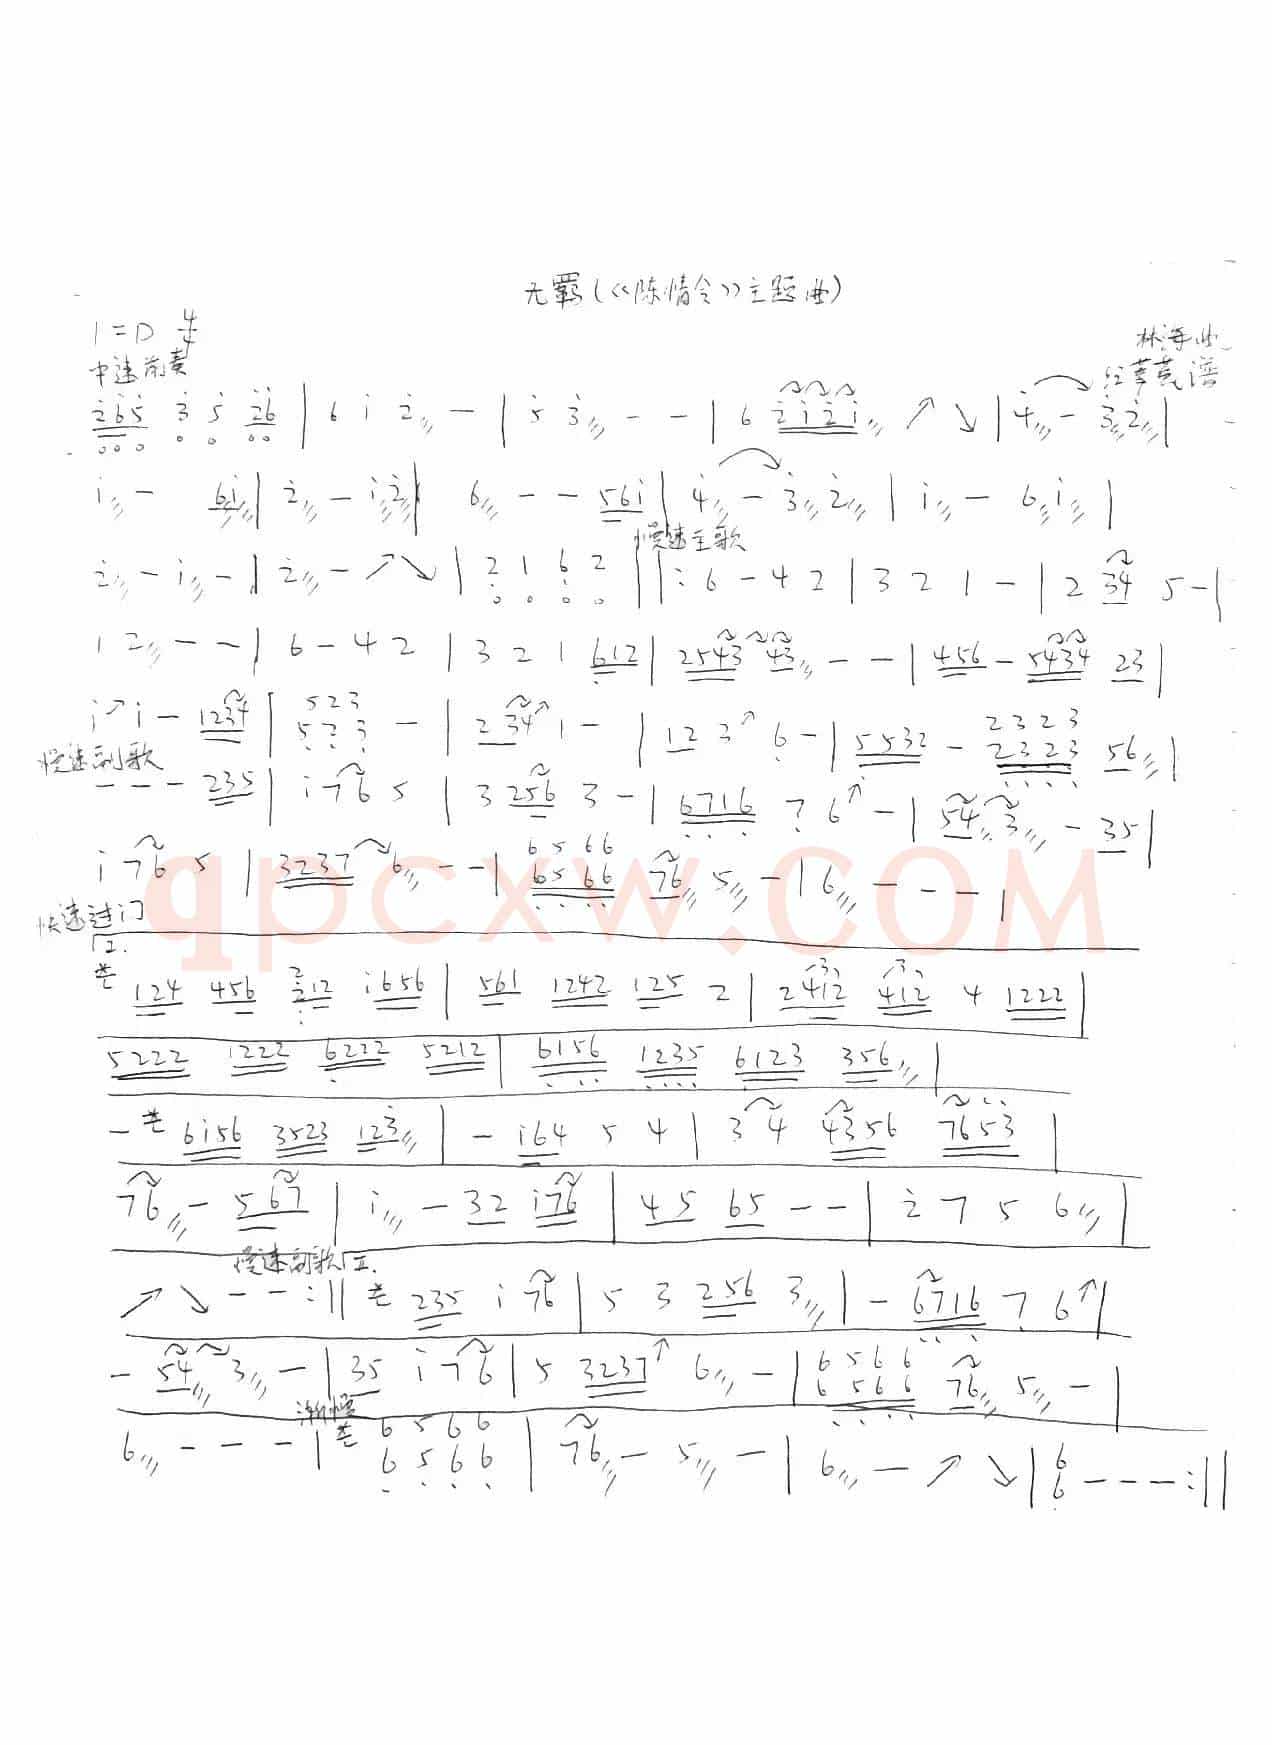 无羁(《陈情令》主题曲)
1=D 4/4
林海曲
谱
中速前奏
2̇6̇5̇ 3̇ 5̇ 2̇6̇ | 6 1̇ 2̇ — | 5̇ 3̇ — — | 6 2̇1̇2̇1̇ ↗ ↘ | 4̇ — 3̇2̇ |
1̇ — 61̇ | 2̇ — 1̇2̇ | 6 — — 561̇ | 4̇ — 3̇ 2̇ | 1̇ — 6 1̇ |
慢速主歌
2̇ — 1̇ — | 2̇ — ↗ ↘ | 2 1 6̣ 2 ‖: 6 — 4 2 | 3 2 1 — | 2 34 5 — |
1 2 — — | 6 — 4 2 | 3 2 1 6̣12 | 2543 43 — — | 456 — 5434 23 |
1̇ ↗ 1̇ — 1234 | 523 — | 2 34 ↗ 1 — | 12 3 ↗ 6̣ — | 5532 — 2323 56 |
5̣2̣3̣ 2̣3̣2̣3̣
慢速副歌
— — — 235 | 1̇ 76 5 | 3 256 3 — | 6̣7̣1̣6̣ 7̣ 6 ↗ — | 54 3 — 35 |
1̇ 76 5 | 3237 6 — — | 6566 76 5 — | 6 — — — |
6̣5̣6̣6̣
qpcxw.COM
快速过门
I.
124 456 2̣12 1̇656 | 561 1242 125 2 | 2412 412 4 1222 |
5222 1222 6̣222 5212 | 6̣15̣6̣ 1̣2̣3̣5̣ 6̣123 356 |
— 61̇56 3523 123̇ | — 1̇64 5 4 | 3 4 4356 7653 |
76 — 567 | 1̇ — 32 1̇76 | 45 65 — — | 2̇ 7 5 6 |
慢速副歌 II.
↗ ↘ — — :‖ 235 1̇ 76 | 5 3 256 3 | — 6̣7̣16̣ 7̣ 6 ↗ |
— 54 3 — | 35 1̇ 76 | 5 3237 ↗ 6 — | 6566 76 5 — |
6̣5̣6̣6̣
渐慢
6 — — — | 6 5 6 6 | 76 — 5 — | 6 — ↗ ↘ | 6 — — — :‖
6̣ 5̣ 6̣ 6̣ 6̣